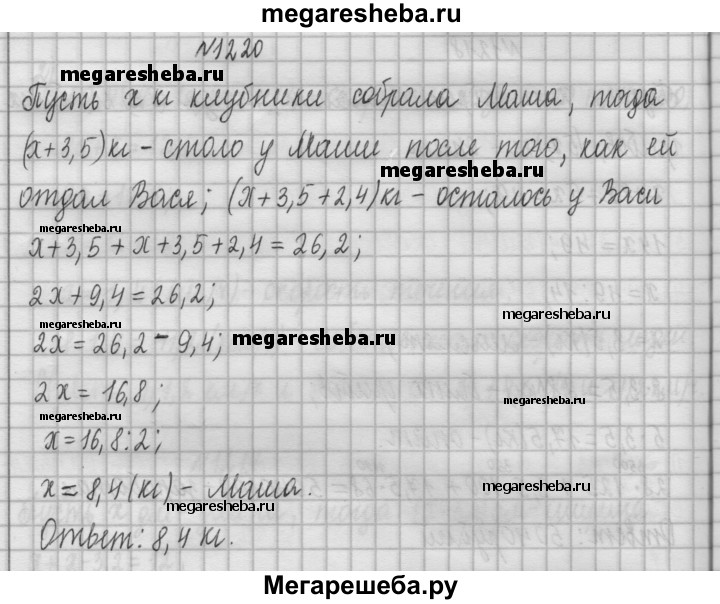 megaresheba.ru
№1220
megaresheba.ru
Пусть x кг клубники собрала Маша, тогда
(x+3,5)кг - стало у Маши после того, как ей
megaresheba.ru
отдал Вася; (x+3,5+2,4)кг - осталось у Васи
megaresheba.ru
x+3,5+x+3,5+2,4=26,2;
2x+9,4=26,2;
megaresheba.ru
megaresheba.ru
2x=26,2-9,4; megaresheba.ru
2x=16,8;
megaresheba.ru
megaresheba.ru
x=16,8:2;
x=8,4(кг) - Маша.
megaresheba.ru
megaresheba.ru
Ответ: 8,4 кг.
Мегарешеба.ру